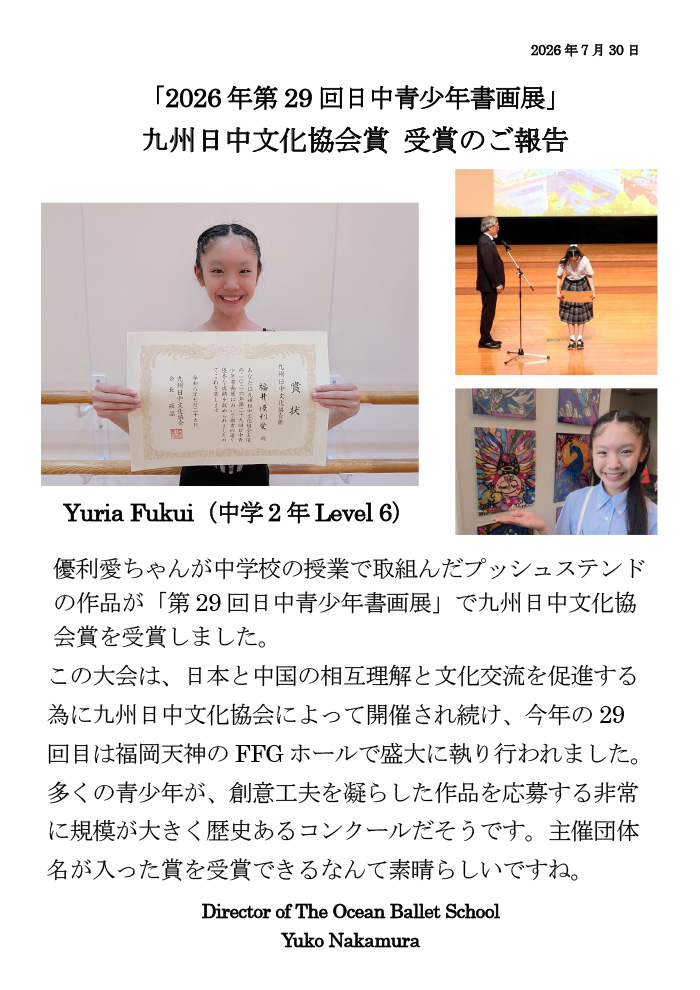 2026年7月30日
「2026年第29回日中青少年書画展」
九州日中文化協会賞 受賞のご報告
賞状
九州日中文化協会賞
福井優利愛 殿
九州日中文化協会
会長
Yuria Fukui（中学2年 Level 6）
優利愛ちゃんが中学校の授業で取組んだプッシュステンド
の作品が「第29回日中青少年書画展」で九州日中文化協
会賞を受賞しました。
この大会は、日本と中国の相互理解と文化交流を促進する
為に九州日中文化協会によって開催され続け、今年の29
回目は福岡天神のFFGホールで盛大に執り行われました。
多くの青少年が、創意工夫を凝らした作品を応募する非常
に規模が大きく歴史あるコンクールだそうです。主催団体
名が入った賞を受賞できるなんて素晴らしいですね。
Director of The Ocean Ballet School
Yuko Nakamura